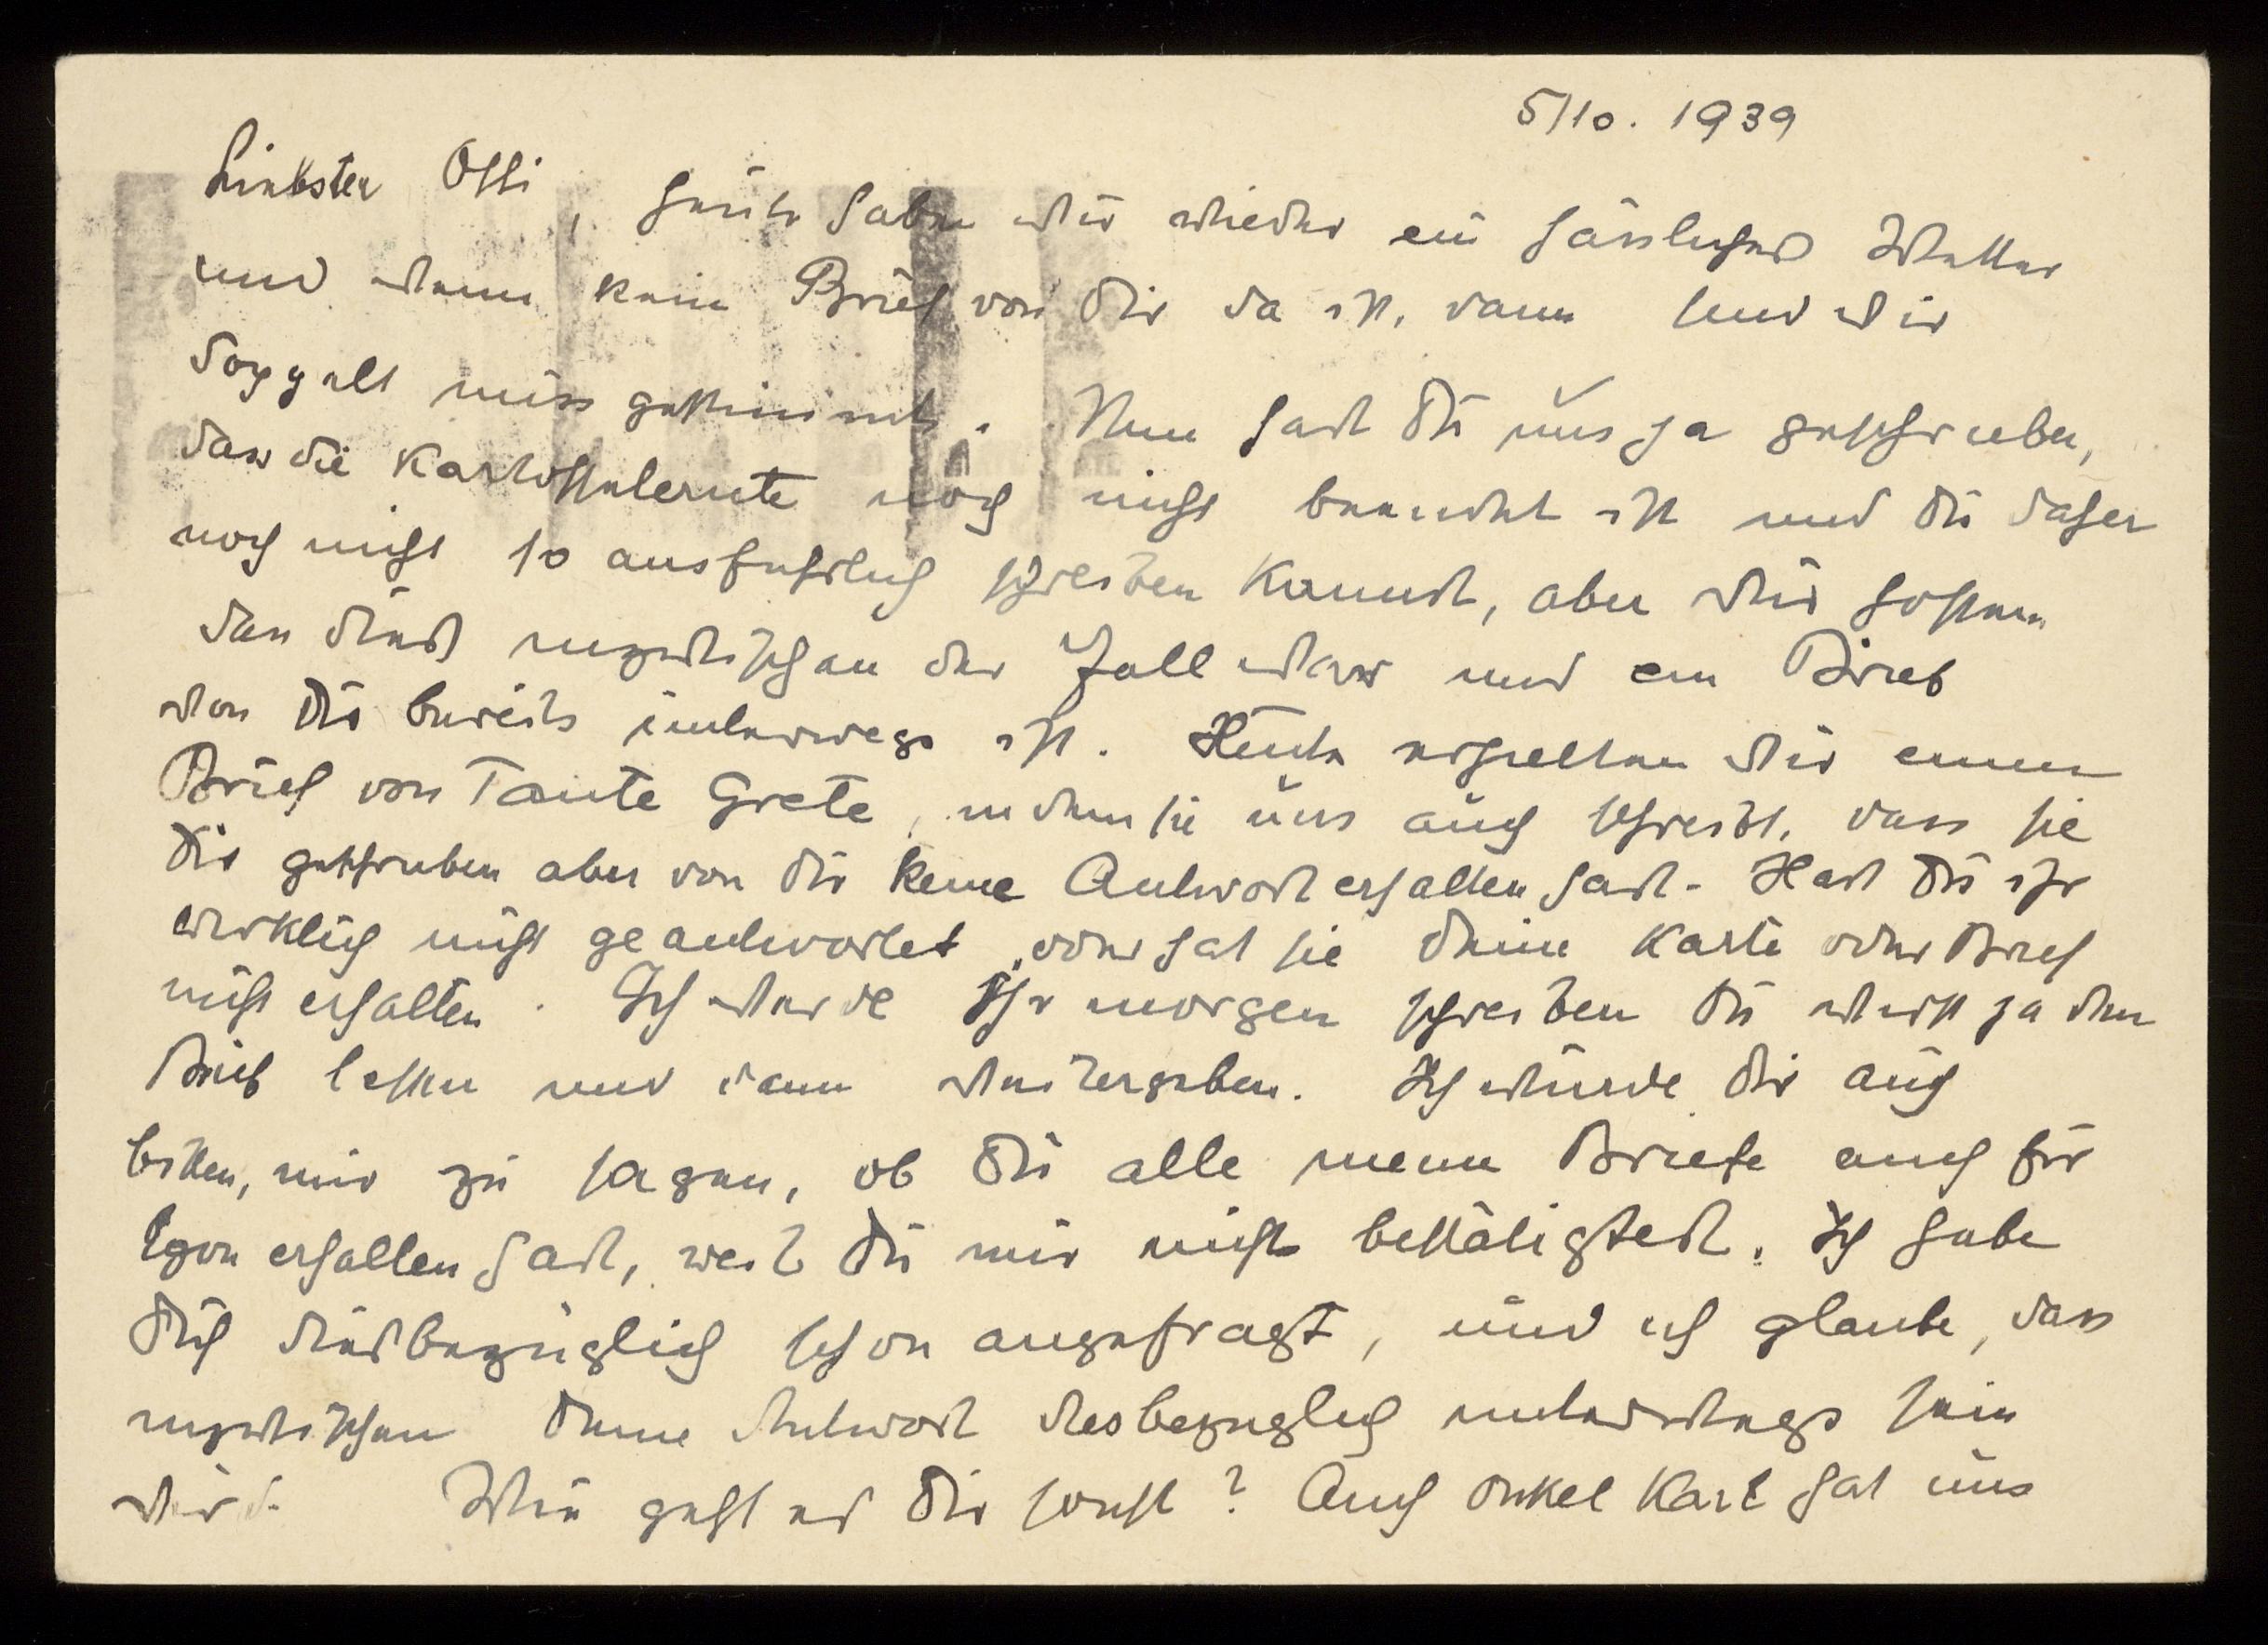 5/10. 1939
Liebster Otti, heute haben wir wieder ein hässliches Wetter
und wenn kein Brief von Dir da ist, dann sind wir
doppelt missgestimmt. Nun hast Du uns ja geschrieben,
dass die Kartoffelernte noch nicht beendet ist und Du daher
noch nicht so ausfuhrlich schreiben kannst, aber wir hoffen
dass dies inzwischen der Fall war und ein Brief
von Dir bereits unterwegs ist. Heute erhielten wir einen
Brief von Tante Grete, in dem sie uns auch schreibt, dass sie
Dir geschrieben aber von Dir keine Antwort erhalten hast. Hast Du ihr
wirklich nicht geantwortet, oder hat sie Deine Karte oder Brief
nicht erhalten. Ich werde Ihr morgen schreiben Du wirst ja den
Brief lesen und dann weitergeben. Ich würde Dir auch
bitten, mir zu sagen, ob Du alle meine Briefe auch für
Egon erhalten hast, weil Du mir nicht bestätigtest. Ich habe
Dich diesbezüglich schon angefragt, und ich glaube, dass
inzwischen Deine Antwort diesbezuglich unterwegs sein
wird. Wie geht es Dir sonst? Auch Onkel Karl hat uns